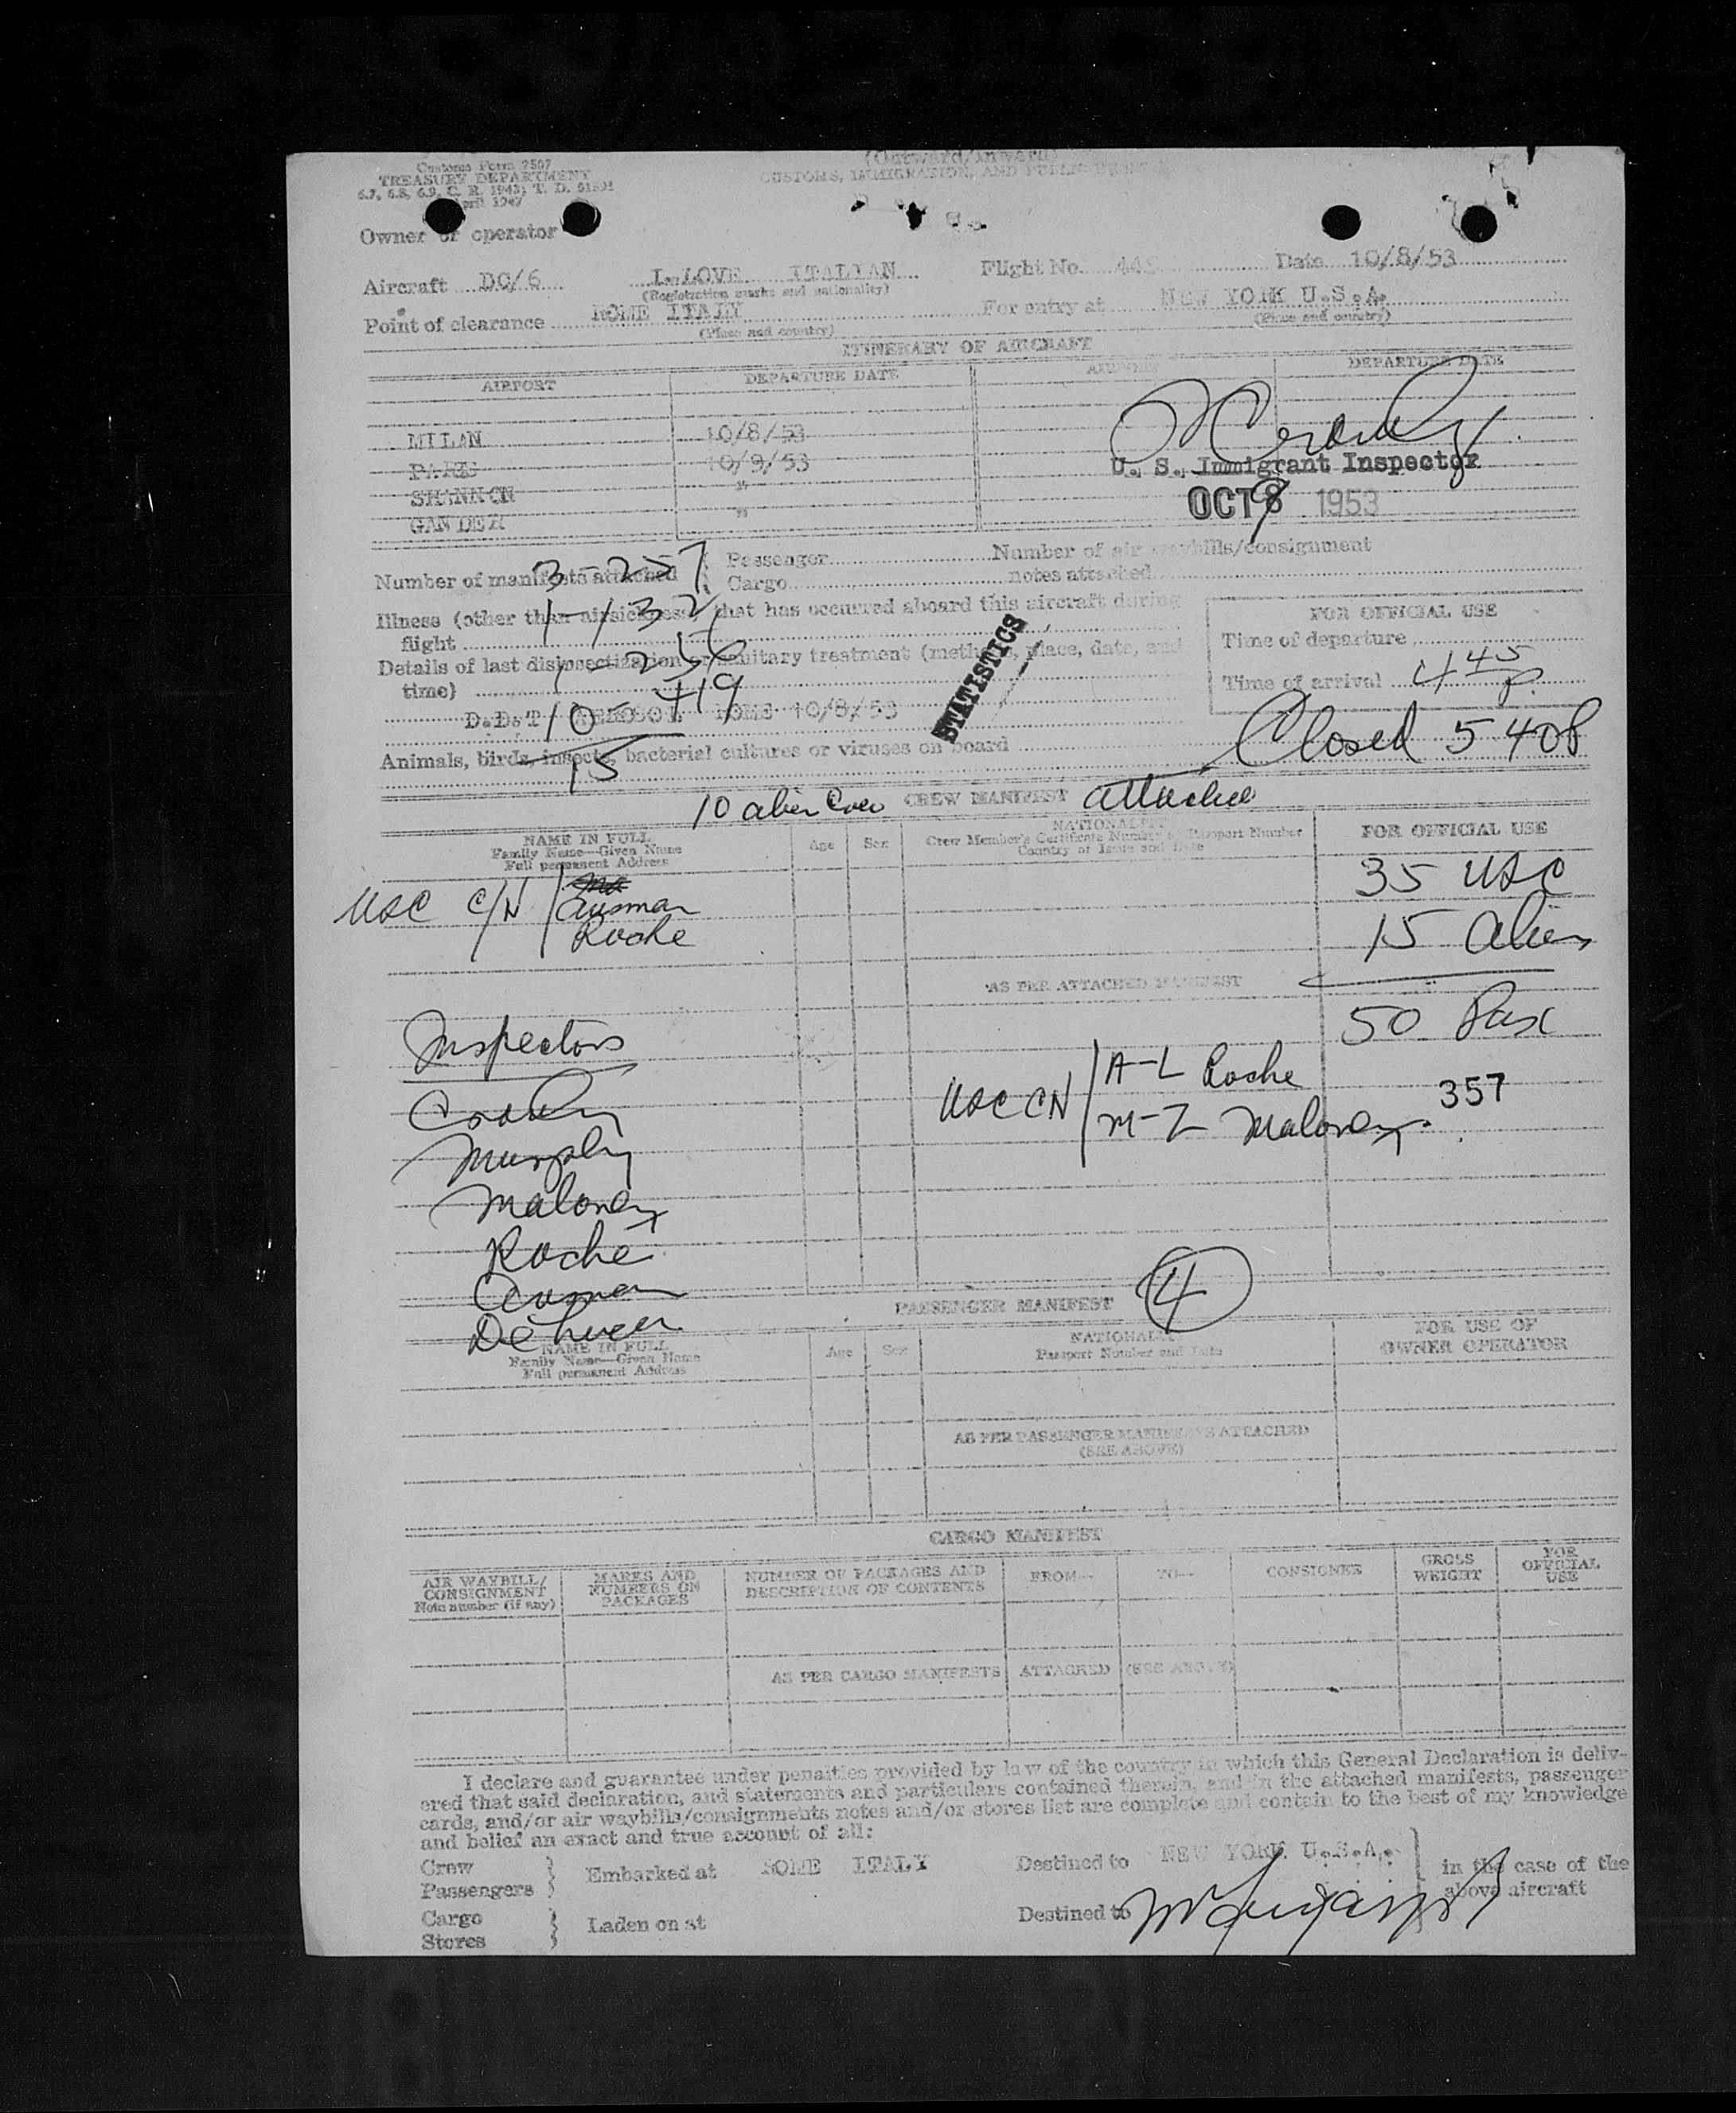 Customs Form 7507
TREASURY DEPARTMENT
6.7, 6.8, 6.9, C. R. 1943; T. D. 51801
April 1947
(Outward/Inward)
CUSTOMS, IMMIGRATION, AND PUBLIC
Owner or operator
Aircraft DC/6 I-LOVE ITALIAN Flight No. Date 10/8/53
(Registration marks and nationality)
Point of clearance ROME ITALY For entry at NEW YORK U.S.A.
(Place and country) (Place and country)
ITINERARY OF AIRCRAFT
AIRPORT DEPARTURE DATE AIRPORT DEPARTURE DATE
MILAN 10/8/53
PARIS 10/9/53
SHANNON "
GANDER "
U. S. Immigrant Inspector
OCT 9 1953
Number of manifests attached Passenger Number of air waybills/consignment
Cargo notes attached
3-257
Illness (other than airsickness) that has occurred aboard this aircraft during
flight
1-132
Details of last disinsectization or sanitary treatment (method, place, date, and
time)
D.D.T AEROSOL ROME 10/8/53
10 - 419
15
STATISTICS
FOR OFFICIAL USE
Time of departure
Time of arrival 4 45 P
Closed 5 40P
Animals, birds, insects, bacterial cultures or viruses on board
10 alien Crew CREW MANIFEST attached
NAME IN FULL Age Sex NATIONALITY FOR OFFICIAL USE
Family Name—Given Name Crew Member's Certificate Number or Passport Number
Full permanent Address Country of Issue and Date
USC C/N Ausman
Roche
35 USC
15 Aliens
50 Pax
AS PER ATTACHED MANIFEST
Inspectors
Crowley
Murphy
Maloney
Roche
Ausman
USC CN A-L Roche
M-Z Maloney
357
PASSENGER MANIFEST 4
NAME IN FULL Age Sex NATIONALITY FOR USE OF
Family Name—Given Name Passport Number and Date OWNER OPERATOR
Full permanent Address
AS PER PASSENGER MANIFESTS ATTACHED
(SEE ABOVE)
CARGO MANIFEST
AIR WAYBILL/ CONSIGNMENT Note number (if any) MARKS AND NUMBERS ON PACKAGES NUMBER OF PACKAGES AND DESCRIPTION OF CONTENTS FROM— TO— CONSIGNEE GROSS WEIGHT FOR OFFICIAL USE
AS PER CARGO MANIFESTS ATTACHED (SEE ABOVE)
I declare and guarantee under penalties provided by law of the country in which this General Declaration is deliv-
ered that said declaration, and statements and particulars contained therein, and in the attached manifests, passenger
cards, and/or air waybills/consignments notes and/or stores list are complete and contain to the best of my knowledge
and belief an exact and true account of all:
Crew Passengers } Embarked at ROME ITALY Destined to NEW YORK U.S.A. in the case of the above aircraft
Cargo Stores } Laden on at Destined to